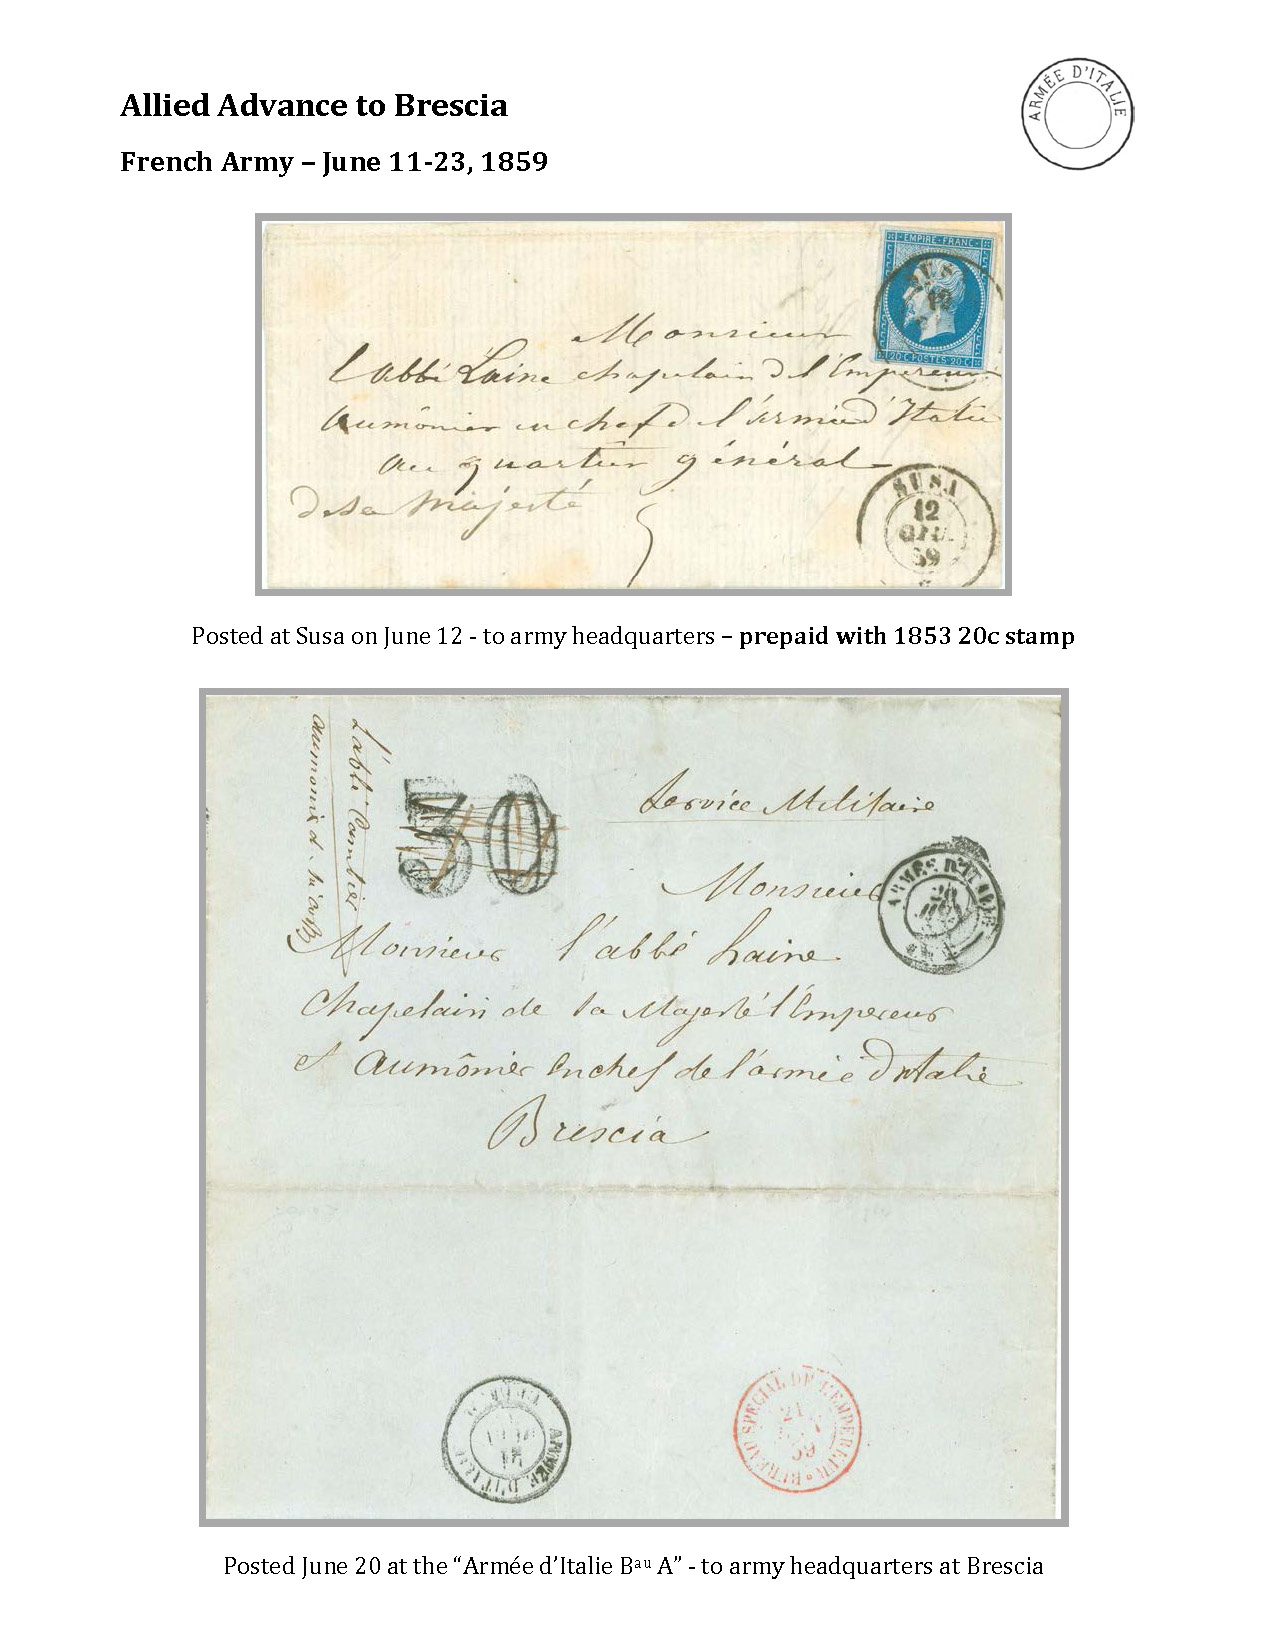 Allied Advance to Brescia
ARMÉE D'ITALIE
French Army – June 11-23, 1859
EMPIRE · FRANC ·
20 C · POSTES · 20 C ·
SUS
12
Monsieur
l'abbé Laine chapelain de l'Empereur
Aumônier en chef de l'armée d'Italie
au quartier général
de sa Majesté
SUSA
12
GIU.
59
Posted at Susa on June 12 - to army headquarters – prepaid with 1853 20c stamp
l'abbé Cambier
aumonier d.
30
Service Militaire
Monsieur
ARMÉE D'ITALIE
20
Monsieur l'abbé Laine
Chapelain de Sa Majesté l'Empereur
et Aumônier en chef de l'armée d'Italie
Brescia
ARMÉE D'ITALIE
BUREAU SPECIAL DE L'EMPEREUR
21
59
Posted June 20 at the “Armée d’Italie Bau A” - to army headquarters at Brescia